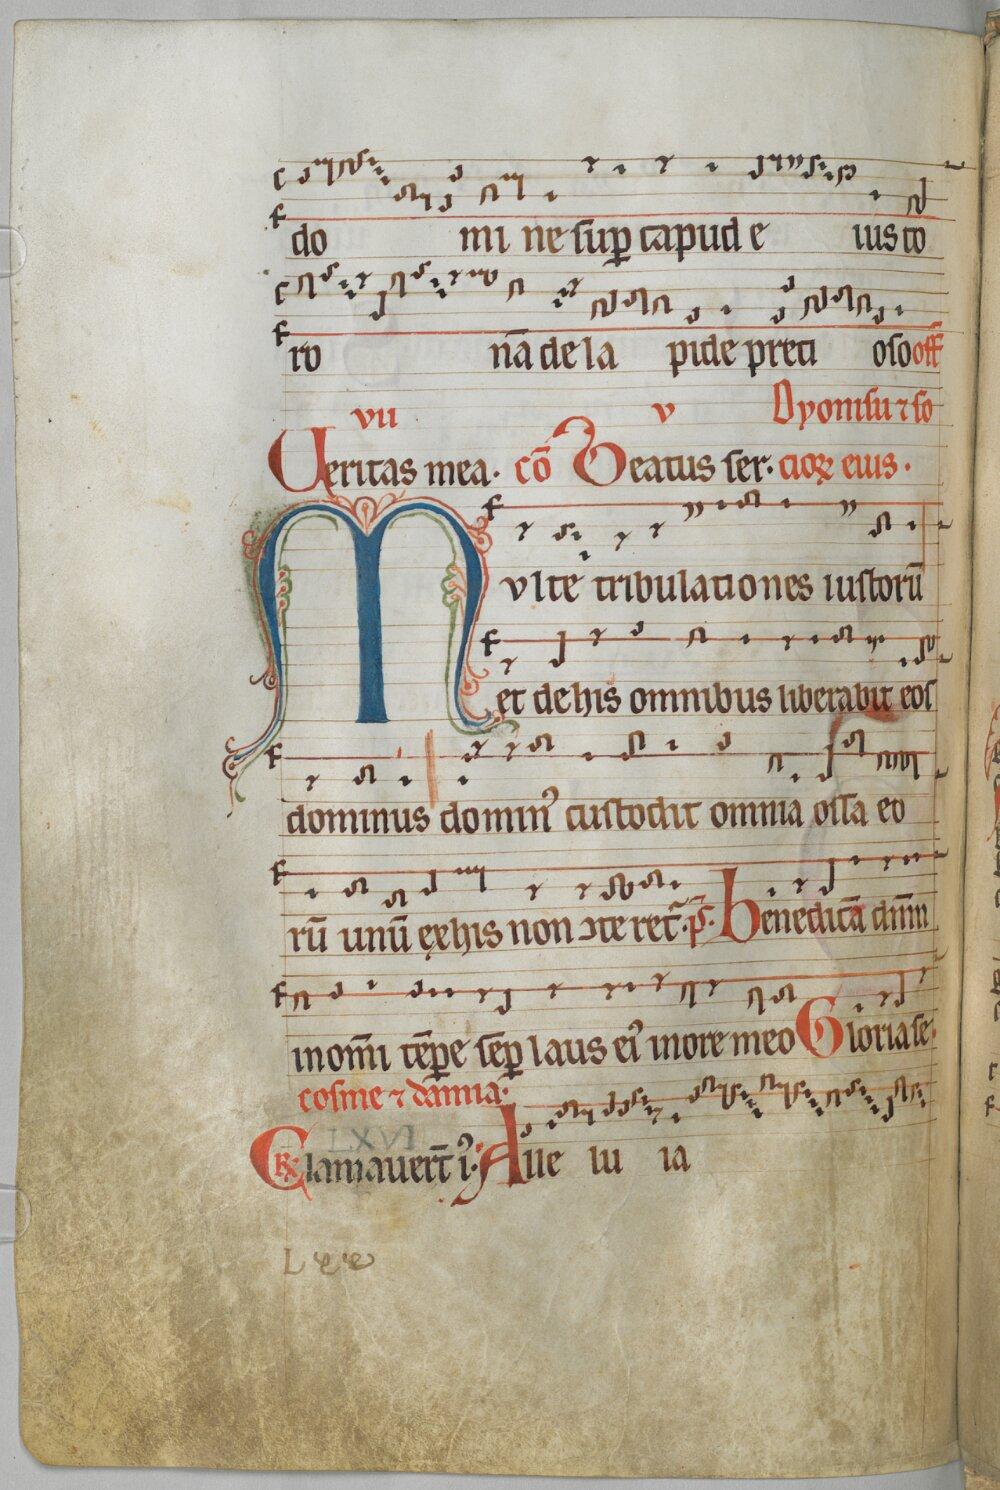 do mi ne sup̱ capud e ius co
ro nā de la pide preci oso off
vii v Dyonisii ⁊ so
Veritas mea. cō Beatus ser. cioꝝ eius.
Multe tribulationes iustorū
et de his omnibus liberabit eos
dominus domin᾽ custodit omnia ossa eo
rū unū ex his non ↄteret᷑. p̄s. Benedicā dn̄m
in om̄i tēꝑe sēꝑ laus ei᾽ in ore meo Gloria se.
cosme ⁊ damia.
LXVI
Clamauer̄t i᾽. Alle lu ia
Lee